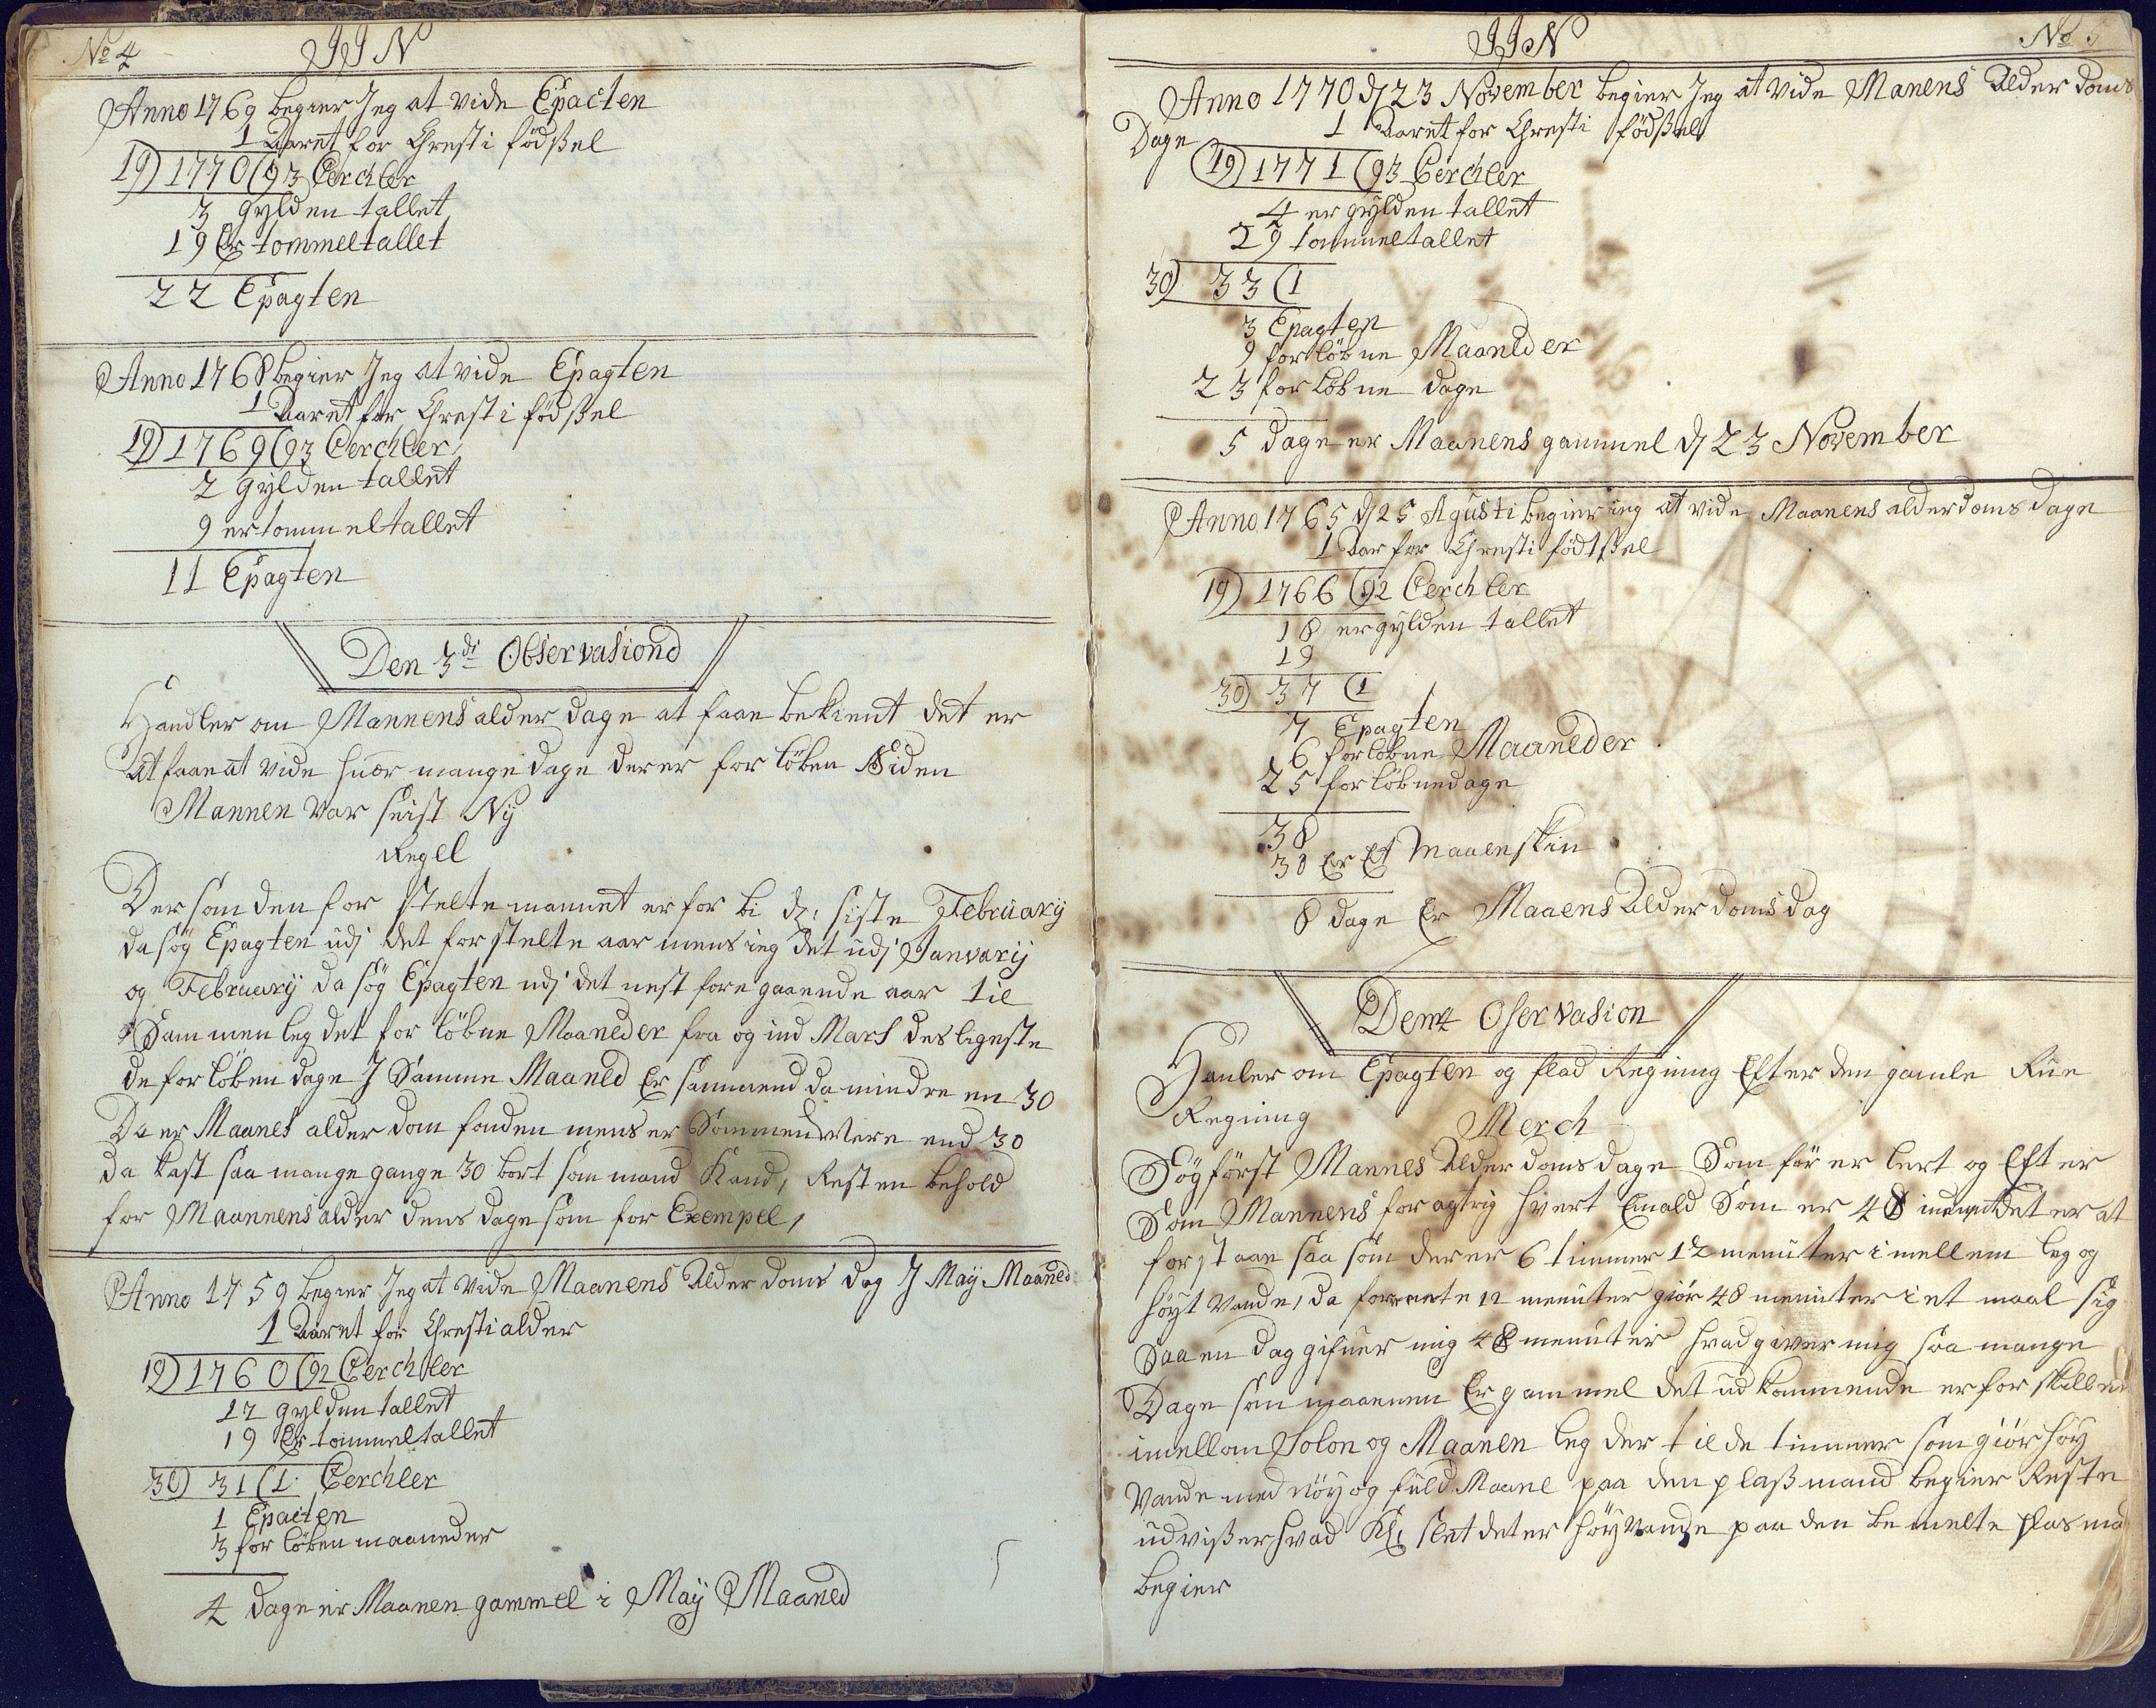 No 4
JJN
Anno 1769 begier Jeg at vide Epacten
1 Aaret for Chresti födßel
19) 1770 (93 Cerchler
3 gylden tallet
19 Er tommeltallet
22 Epagten
Anno 1768 begier Jeg at vide Epagten
1 Aaret for Chresti födßel
19) 1769 (93 Cerchler
2 gylden tallet
9 er tommeltallet
11 Epagten
Den 3di Observasiond
Handler om Mannens alder dage at faae bekient det er
at faae at vide huor mange dage der er for löben Siden
Mannen var sist Ny
Regel
Der som den for stelte mannet er for bi d: siste February
da søg Epagten udj det for stelte aar mens ieg det udj Januarij
og February da søg Epagten udj det nest fore gaaende aar til
Sammen leg det for löbne Maaneder fra og ind Mars des ligeste
de for löben dage J Samme Maaned Er sammend da mindre en 30
Da er Maanes alder dom funden mens er Sommend Mere end 30
da kast saa mange gange 30 bort som mand Kand, Resten behold
for Maannens alder doms dage som for Exempel,
Anno 1759 begier Jeg at vide Maanens Alder doms dag J May Maaned
1 Aaret for Chresti alder
19) 1760 (92 Cerchler
12 gylden tallet
19 Er tommeltallet
30) 31 (1 Cerchler
1 Epacten
3 for löben maaneder
4 dage er Maanen gammel i May Maaned
JJN
No 5
Anno 1770 d 23 November begier Jeg at vide Manens Alder doms
Dage
1 Aaret for Chresti födßel
19) 1771 (93 Cerchler
4 er gylden tallet
29 tommeltallet
30) 33 (1
3 Epagten
9 for löbne Maaneder
23 for löbne dage
5 dage er Maanens gammel d 23 November
Anno 1765 d 25 Agusti begier ieg at vide Maanens alderdoms dage
1 Aar for Chresti födtßel
19) 1766 (92 Cerchler
18 er gylden tallet
19
30) 37 (1
7 Epagten
6 for löbne Maaneder
25 for löbne dage
38
30 Er Et Maaenskin
8 dage Er Maaens Alder doms dag
Dem 4 Oservasion
Hanler om Epagten og flod Regning Efter den gamle Rue
Regning
Merch
Søg först Mannes Alder doms dage Som för er lert og Efter
Som Mannens for agtrig hvert Emald Som er 48 det er at
for staae saa som der er 6 timmer 12 menuter i mellem lag og
höyt vande, da for nente 12 menuter giör 48 menuter i et maal sig
Saa en dag gifuer mig 48 menuter hvad giver mig saa mange
Dage som maanen Er gammel det udkommende er for skillen
imellom Solon og Maanen leg der til de timmer som giör höy
vande med nöy og fuld Maane paa den plaß mand begier Reste
udvißer hvad Kl: slet det er höy vande paa den be melte plas ma
begier